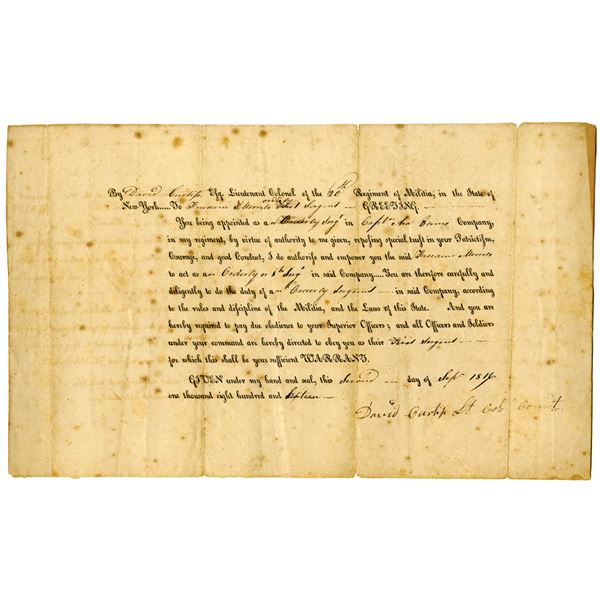 By David Curtis Esq. Lieutenant Colonel of the 20th Regiment of Militia, in the State of
New-York.....To First Sergent GREETING.
You being appointed as an Orderly Sergt in Capt. Asa Company,
in my regiment, by virtue of authority to me given, reposing special trust in your Patriotism,
Courage, and good Conduct, I do authorise and empower you the said
to act as an Orderly or 1st Sergt in said Company....You are therefore carefully and
diligently to do the duty of an Orderly Sergent in said Company, according
to the rules and discipline of the Militia, and the Laws of this State. And you are
hereby required to pay due obedience to your Superior Officers; and all Officers and Soldiers
under your command are hereby directed to obey you as their First Sergent
for which this shall be your sufficient WARRANT.
GIVEN under my hand and seal, this Second day of Sept 1816
one thousand eight hundred and Sixteen
David Curtis Lt Col Comdt.